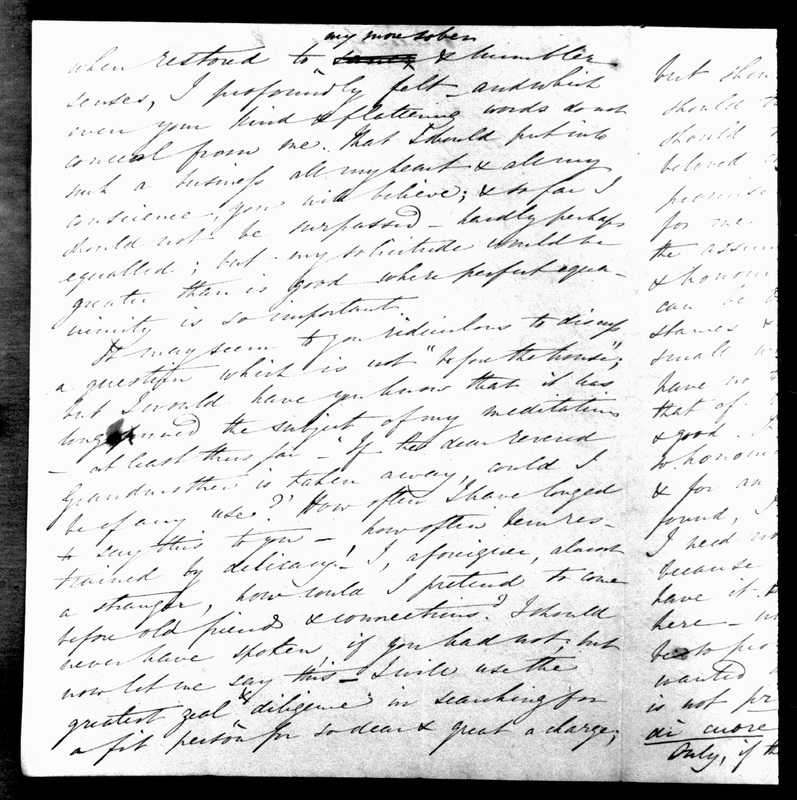 my more sober
when restored to & humbler
senses, I profoundly felt - and which
even your kind & flattering words do not
conceal from me. That I should put into
such a business all my heart & all my
conscience, you will believe; & so far I
should not be surpassed - hardly perhaps
equalled; but my solicitude would be
greater than is good where perfect equa-
nimity is so important.
It may seem to you ridiculous to discuss
a question which is not "before the house";
but I would have you know that it has
long formed the subject of my meditations
- at least thus far - "If the dear revered
Grandmother is taken away, could I
be of any use?" How often I have longed
to say this to you - how often been res-
trained by delicacy! I, a foreigner, almost
a stranger, how could I pretend to come
before old friends & connections? I should
never have spoken if you had not; but
now let me say this - I will use the
greatest zeal & diligence in searching for
a fit person for so dear & great a charge;
but shou
should th
should
beloved
promise
for me.
the assu
& honour
can be
stances &
small
have no
that of
& good.
so honour
& for an
found, I
I need no
because
have it.
here -
be to pro
wanted
is not pr
di cuore
Only, if th